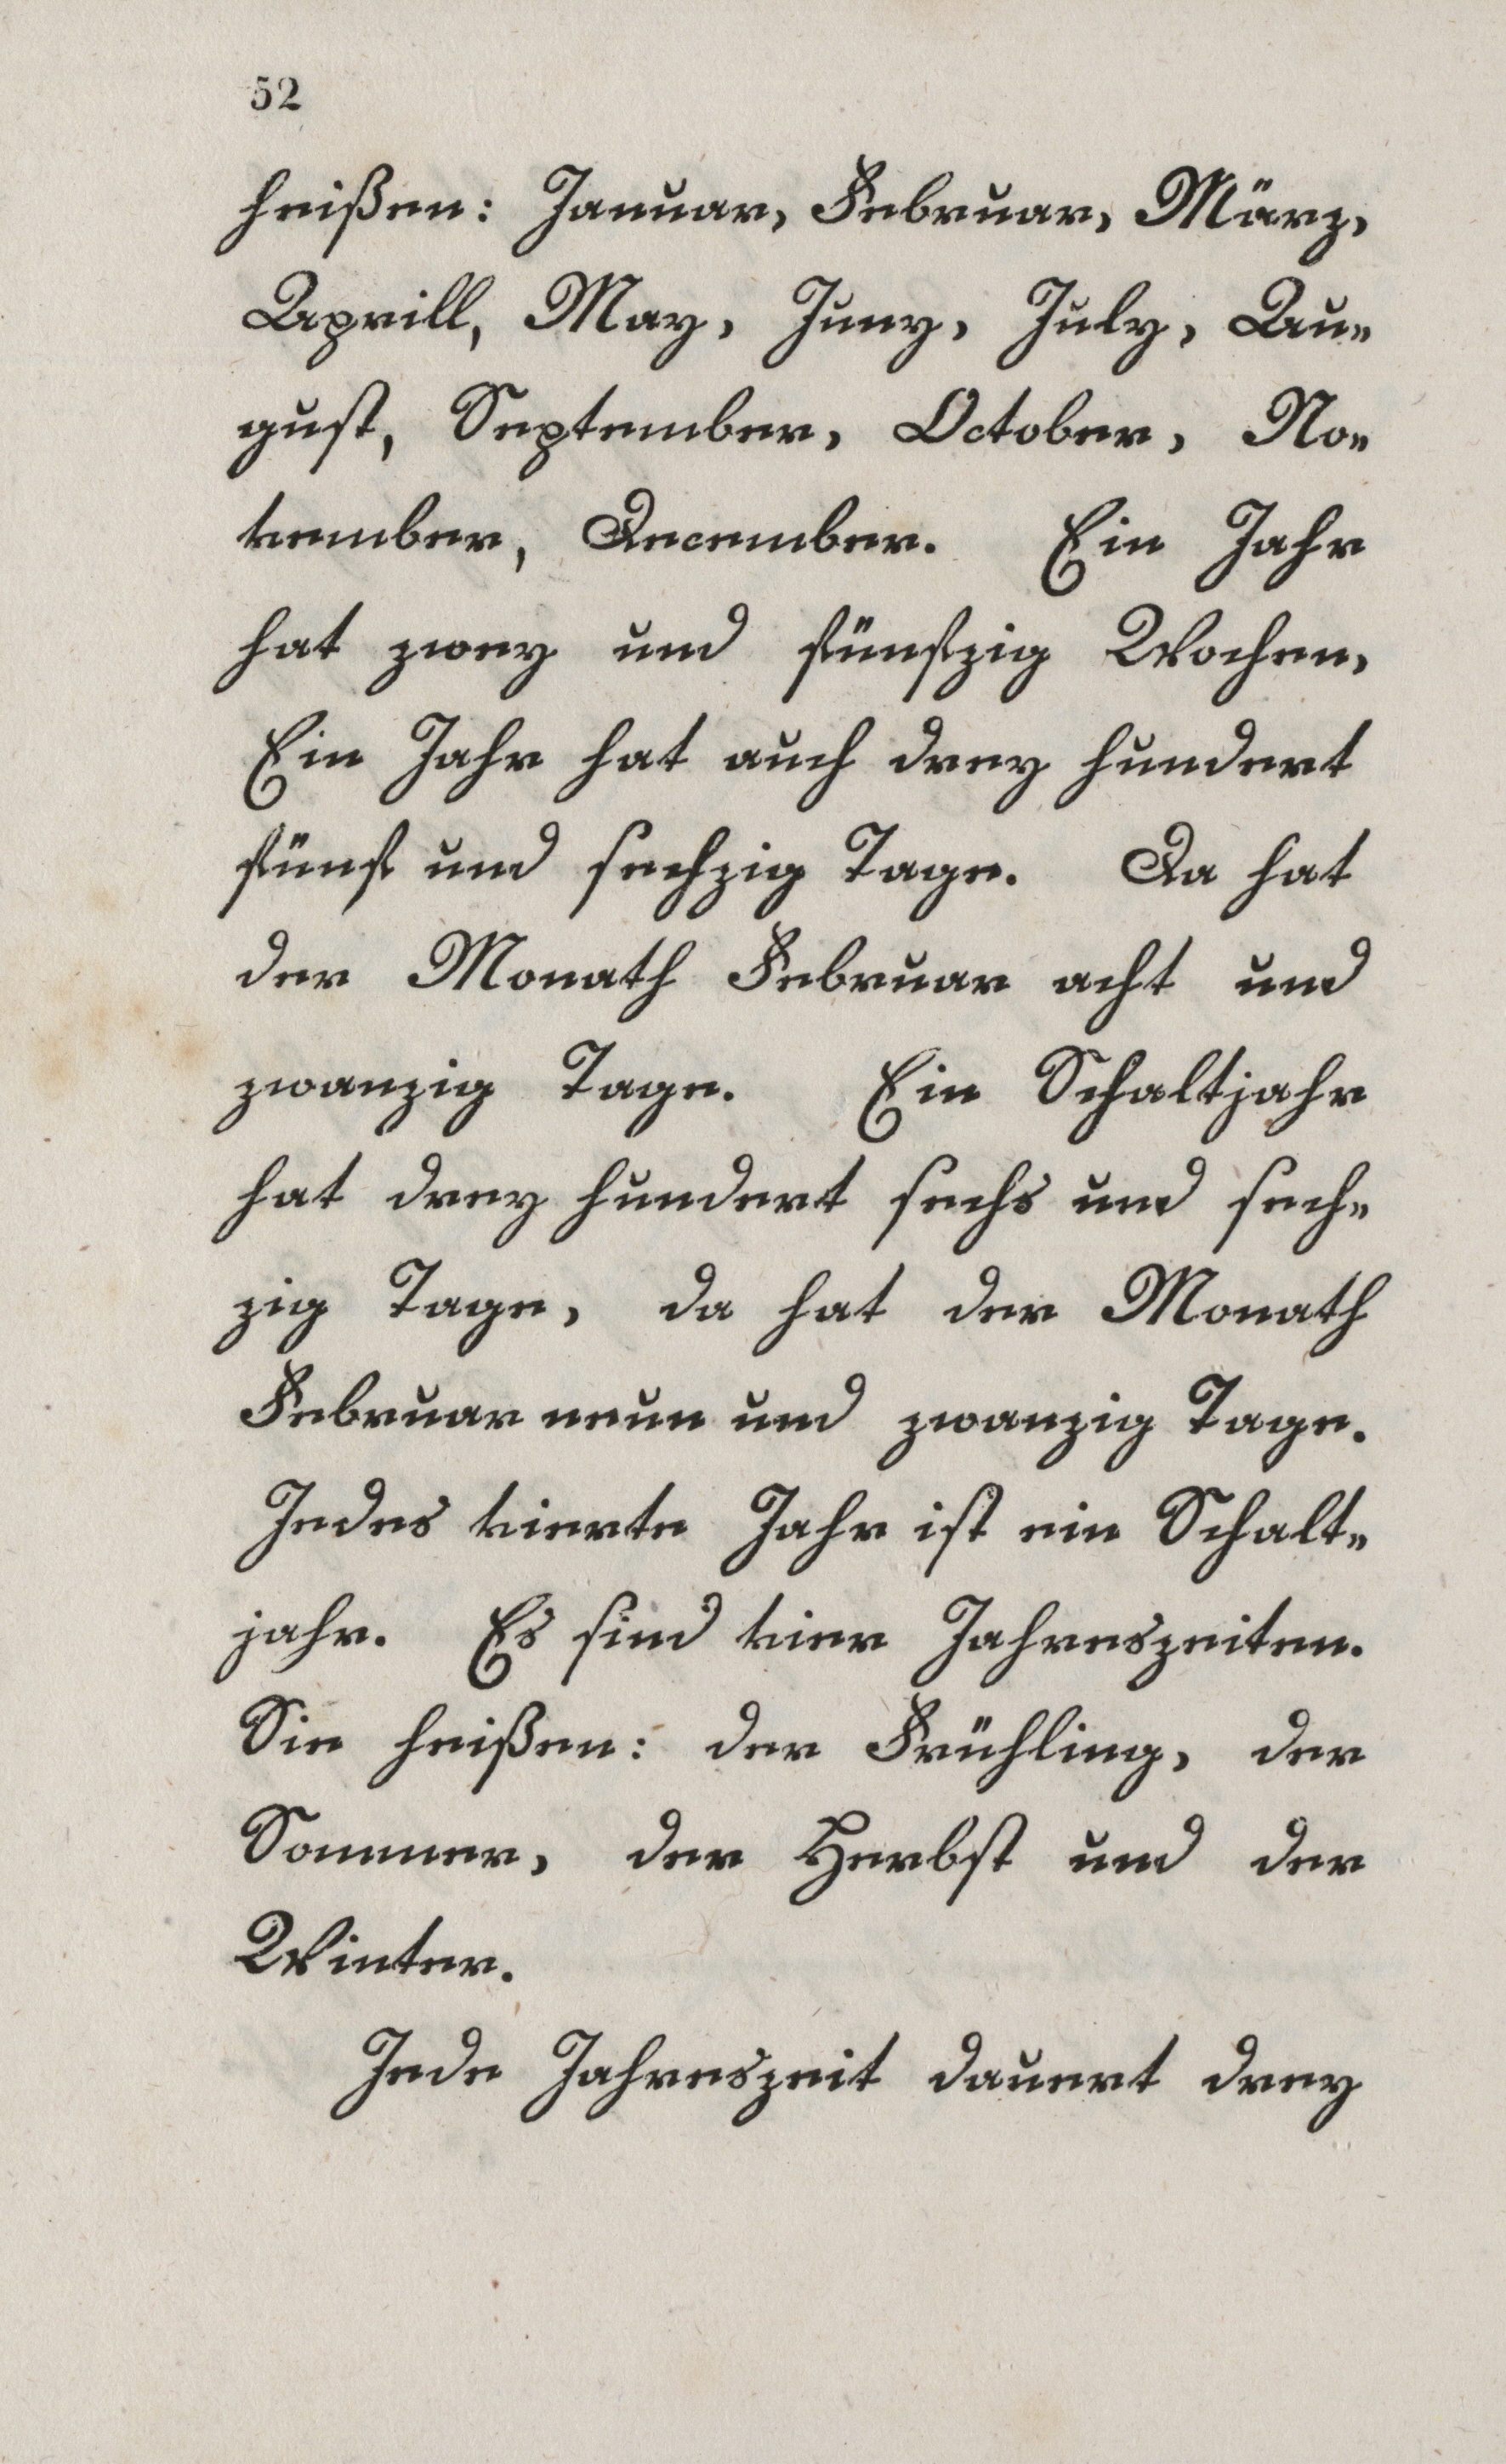 52
heißen: Januar, Februar, März,
Aprill, May, Juny, July, Au-
gust, September, October, No-
vember, December. Ein Jahr
hat zwey und fünfzig Wochen,
Ein Jahr hat auch drey hundert
fünf und sechzig Tage. Da hat
der Monath Februar acht und
zwanzig Tage. Ein Schaltjahr
hat drey hundert sechs und sech-
zig Tage, da hat der Monath
Februar neun und zwanzig Tage.
Jedes vierte Jahr ist ein Schalt-
jahr. Es sind vier Jahreszeiten.
Sie heißen: der Frühling, der
Sommer, der Herbst und der
Winter.
Jede Jahreszeit dauert drey